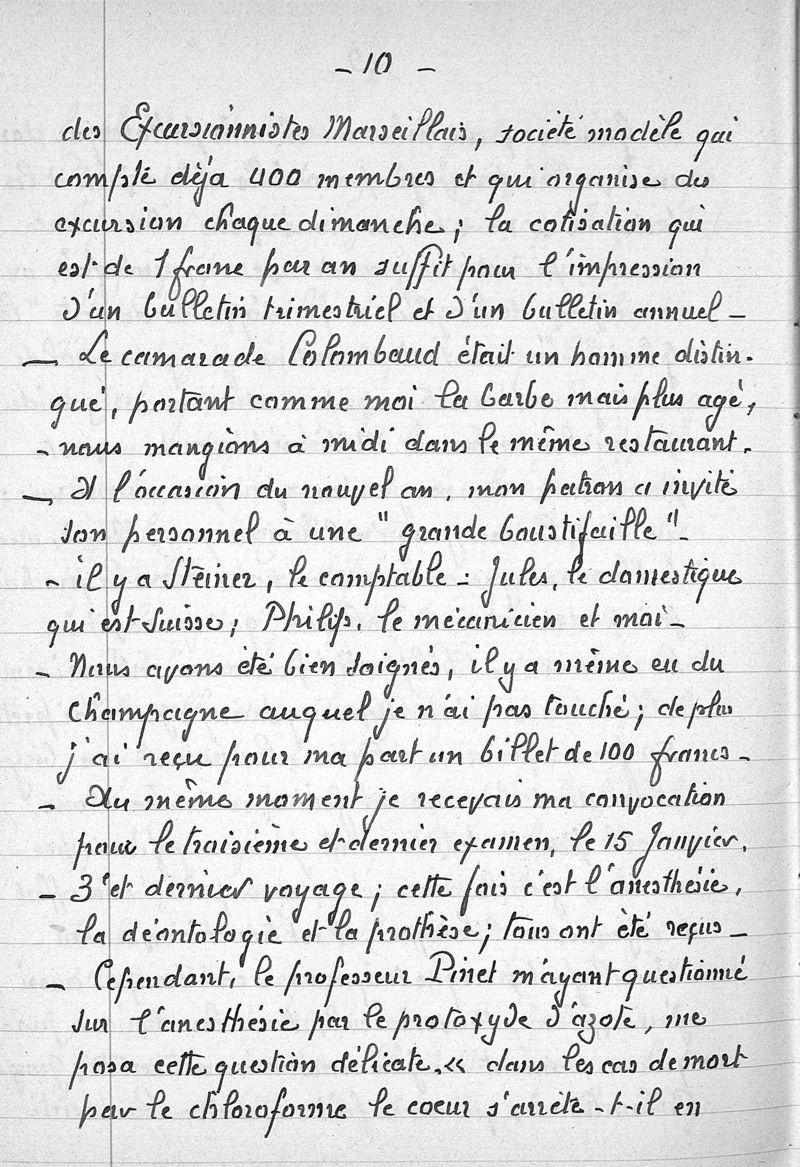 - 10 -
des Excursionnistes Marseillais, société modèle qui
compte déjà 400 membres et qui organise des
excursion chaque dimanche ; la cotisation qui
est de 1 franc par an suffit pour l'impression
d'un bulletin trimestriel et d'un bulletin annuel -
- Le camarade Colombaud était un homme distin-
gué, portant comme moi la barbe mais plus agé,
- nous mangions à midi dans le même restaurant.
- A l'occasion du nouvel an, mon patron a invité
son personnel à une "grande boustifaille" -
- il y a Steiner, le comptable - Jules, le domestique
qui est suisse ; Philip, le mécanicien et moi -
- Nous avons été bien soignés, il y a même eu du
champagne auquel je n'ai pas touché ; de plus
j'ai reçu pour ma part un billet de 100 francs -
- Au même moment je recevais ma convocation
pour le troisième et dernier examen, le 15 Janvier.
- 3e et dernier voyage ; cette fois c'est l'anesthésie,
la déontologie et la prothèse ; tous ont été reçus -
- Cependant, le professeur Pinet m'ayant questionné
sur l'anesthésie par le protoxyde d'azote, me
posa cette question délicate, « dans les cas de mort
par le chloroforme le coeur s'arrête -t-il en